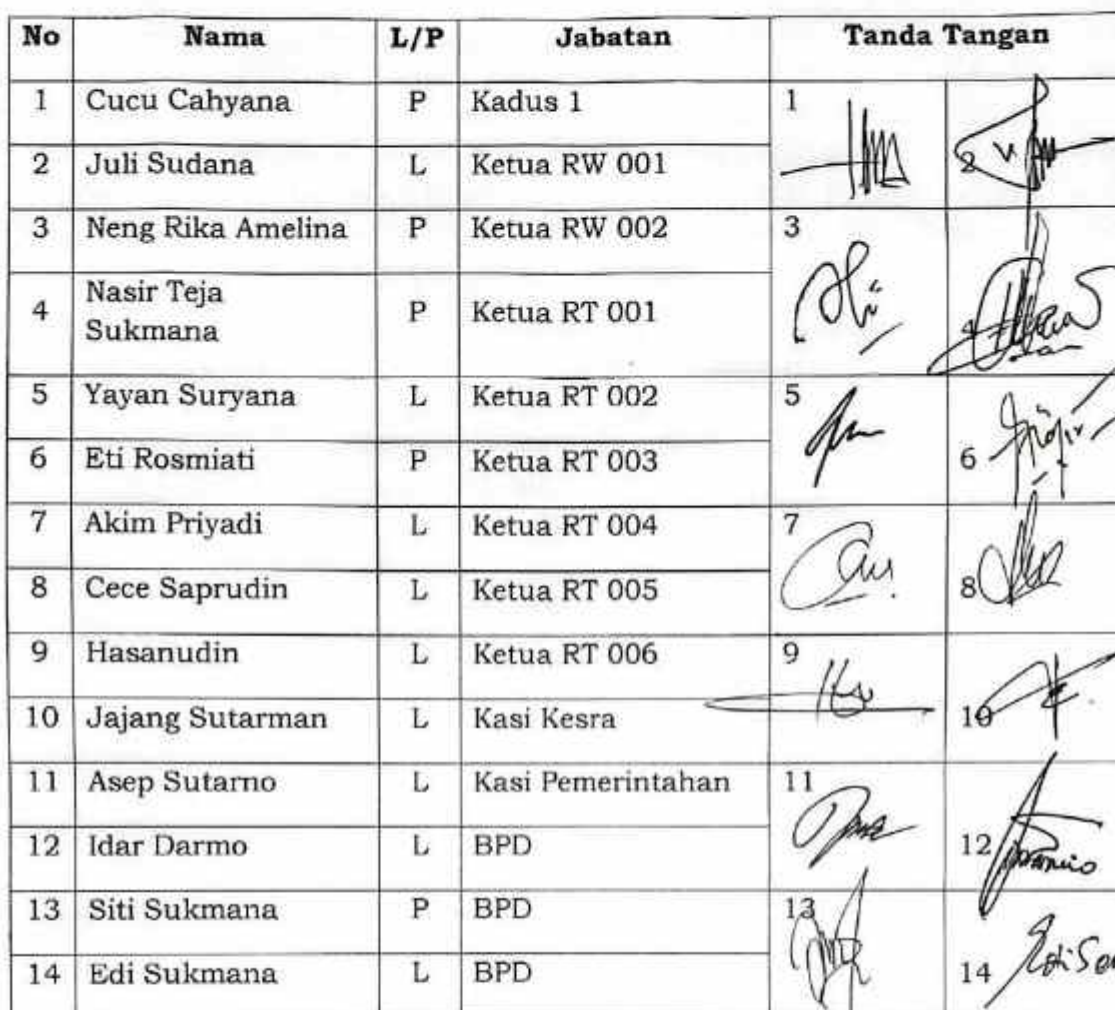 No Nama L/P Jabatan Tanda Tangan
1 Cucu Cahyana P Kadus 1 1
2 Juli Sudana L Ketua RW 001 2
3 Neng Rika Amelina P Ketua RW 002 3
4 Nasir Teja Sukmana P Ketua RT 001 4
5 Yayan Suryana L Ketua RT 002 5
6 Eti Rosmiati P Ketua RT 003 6
7 Akim Priyadi L Ketua RT 004 7
8 Cece Saprudin L Ketua RT 005 8
9 Hasanudin L Ketua RT 006 9
10 Jajang Sutarman L Kasi Kesra 10
11 Asep Sutarno L Kasi Pemerintahan 11
12 Idar Darmo L BPD 12
13 Siti Sukmana P BPD 13
14 Edi Sukmana L BPD 14